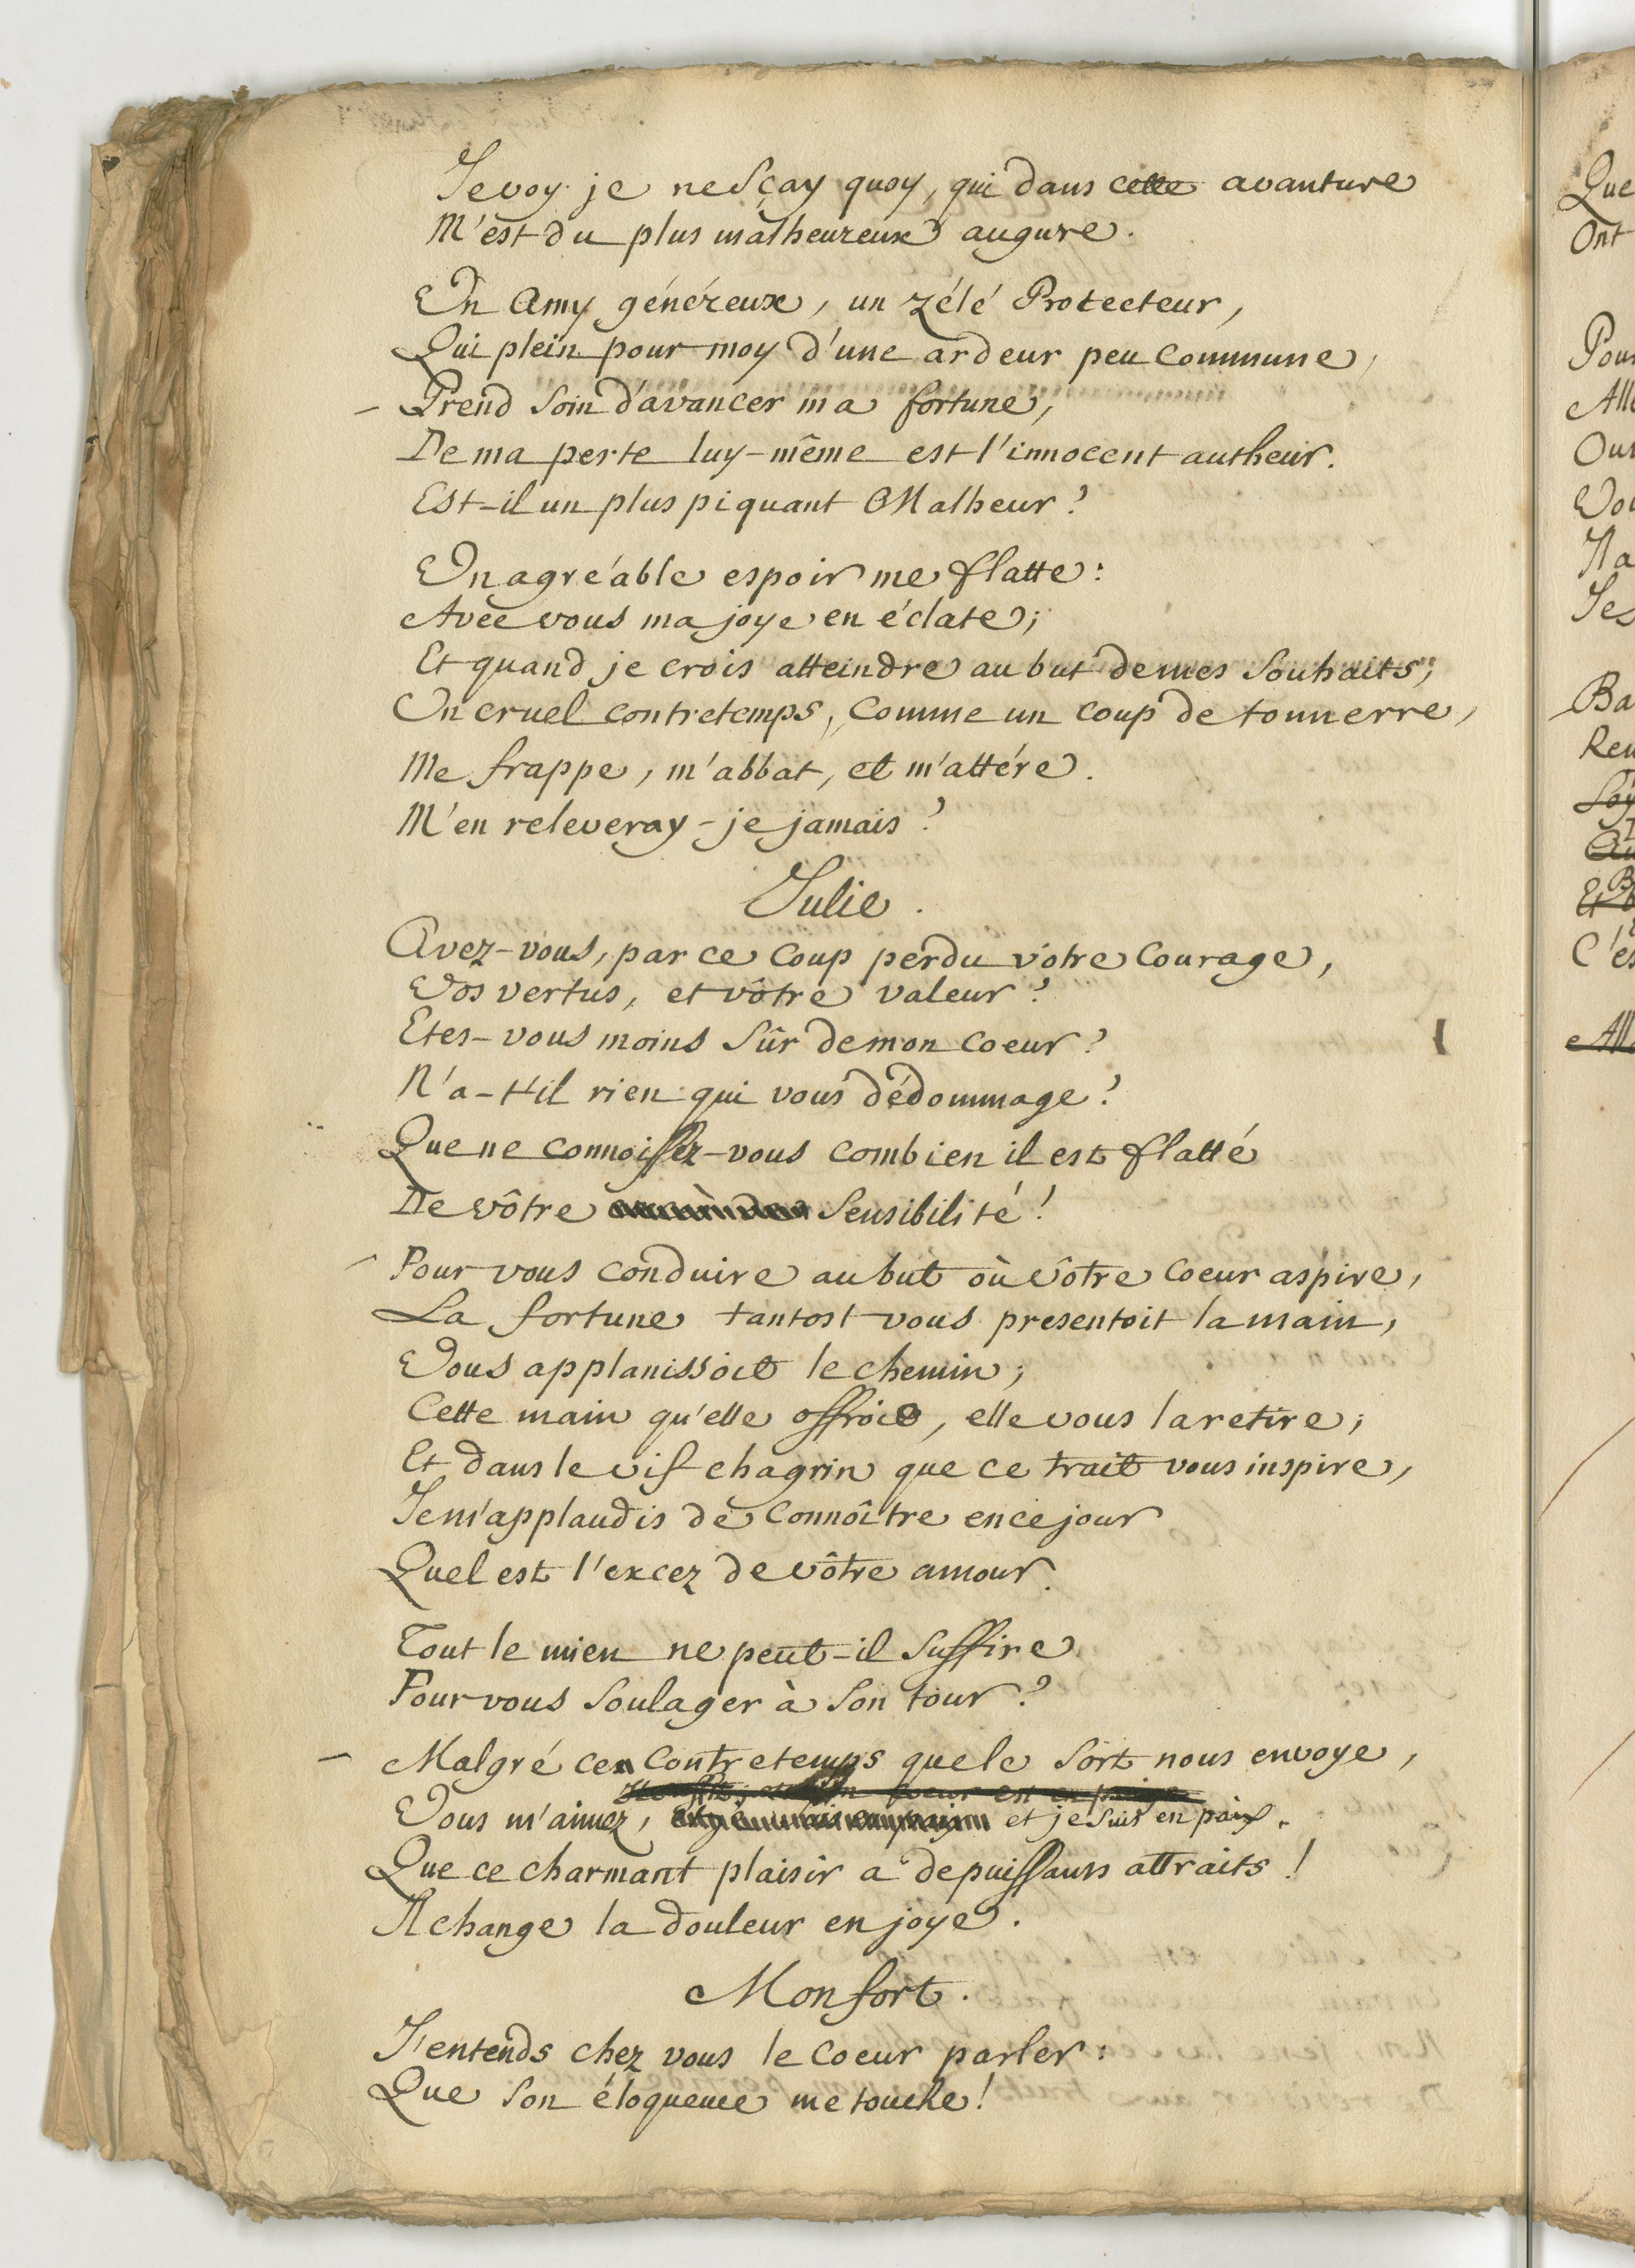 Je voy je ne sçay quoy, qui dans cette avanture
M'est du plus malheureux augure.
Un Amy généreux, un zélé Protecteur,
Qui plein pour moy d'une ardeur peu commune,
– Prend soin d'avancer ma fortune,
De ma perte luy-même est l'innocent autheur.
Est-il un plus piquant Malheur?
Un agréable espoir me flatte:
Avec vous ma joye en éclate;
Et quand je crois atteindre au but de mes souhaits,
Un cruel contretemps, comme un coup de tonnerre,
Me frappe, m'abbat, et m'attére.
M'en releveray-je jamais?
Julie.
Avez-vous, par ce coup perdu vôtre courage,
Vos vertus, et vôtre valeur?
Etes-vous moins sûr de mon coeur?
N'a-t'il rien qui vous dédommage?
Que ne connoissez-vous combien il est flatté
De vôtre sensibilité!
– Pour vous conduire au but où vôtre coeur aspire,
La fortune tantost vous presentoit la main,
Vous applanissoit le chemin;
Cette main qu'elle offroit, elle vous la retire;
Et dans le vif chagrin que ce trait vous inspire,
Je m'applaudis de connoître en ce jour
Quel est l'excez de vôtre amour.
Tout le mien ne peut-il suffire
Pour vous soulager à son tour?
– Malgré ce contretemps que le sort nous envoye,
coeur est en paix
Vous m'aimez, et je suis en paix.
Que ce charmant plaisir a de puissans attraits!
Il change la douleur en joye.
Monfort.
J'entends chez vous le coeur parler:
Que son éloquence me touche!
Que
Ont
Ba
C'es